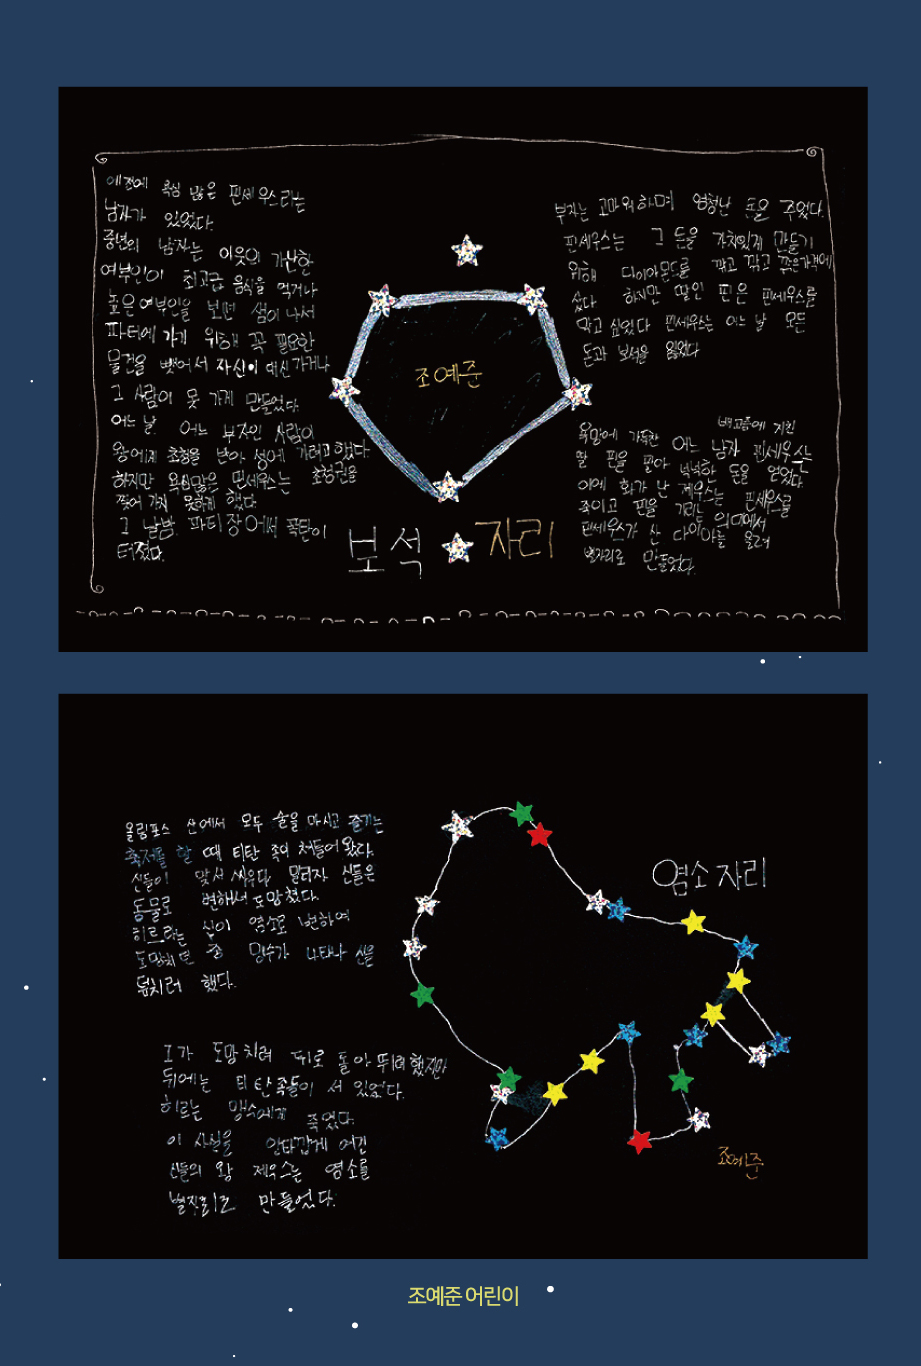 예전에 욕심 많은 핀세우스라는
남자가 있었다.
중년의 남자는 이웃의 가난한
여부인이 최고급 음식을 먹거나
높은 여부인을 보면 샘이 나서
파티에 가기 위해 꼭 필요한
물건을 뺏어서 자신이 대신 가거나
그 사람이 못 가게 만들었다.
어느 날 어느 부자인 사람이
왕에게 초청을 받아 성에 가려고 했다
하지만 욕심많은 핀세우스는 초청권을
찢어 가져 못하게 했다
그 날밤 파티장에서 폭탄이
터졌다.
조예준
보석 자리
부자는 고마워하며 엄청난 돈을 주었다.
핀세우스는 그 돈을 가치있게 만들기
위해 다이아몬드를 깎고 깎고 깎은가격에
샀다 하지만 딸인 핀은 핀세우스를
막고 싶었다 핀세우스는 어느 날 모든
돈과 보석을 잃었다
배고픔에 지친
욕망에 가득찬 어느 남자 핀세우스는
딸 핀을 팔아 넉넉한 돈을 얻었다.
이에 화가 난 제우스는 핀세우스를
죽이고 핀을 기리는 의미에서
핀세우스가 산 다이아를 올려
별자리로 만들었다.
올림포스 산에서 모두 술을 마시고 즐기는
축제를 할 때 티탄 족이 쳐들어왔다.
신들이 맞서 싸우다 밀리자 신들은
동물로 변해서 도망쳤다.
히르라는 신이 염소로 변하여
도망치던 중 맹수가 나타나 신을
덮치려 했다.
도망치려 뒤로 돌아 뛰려 했지만
뒤에는 티탄족들이 서 있었다.
히르는 맹수에게 죽었다.
이 사실을 안타깝게 여긴
신들의 왕 제우스는 염소를
별자리로 만들었다.
염소자리
조예준
조예준 어린이